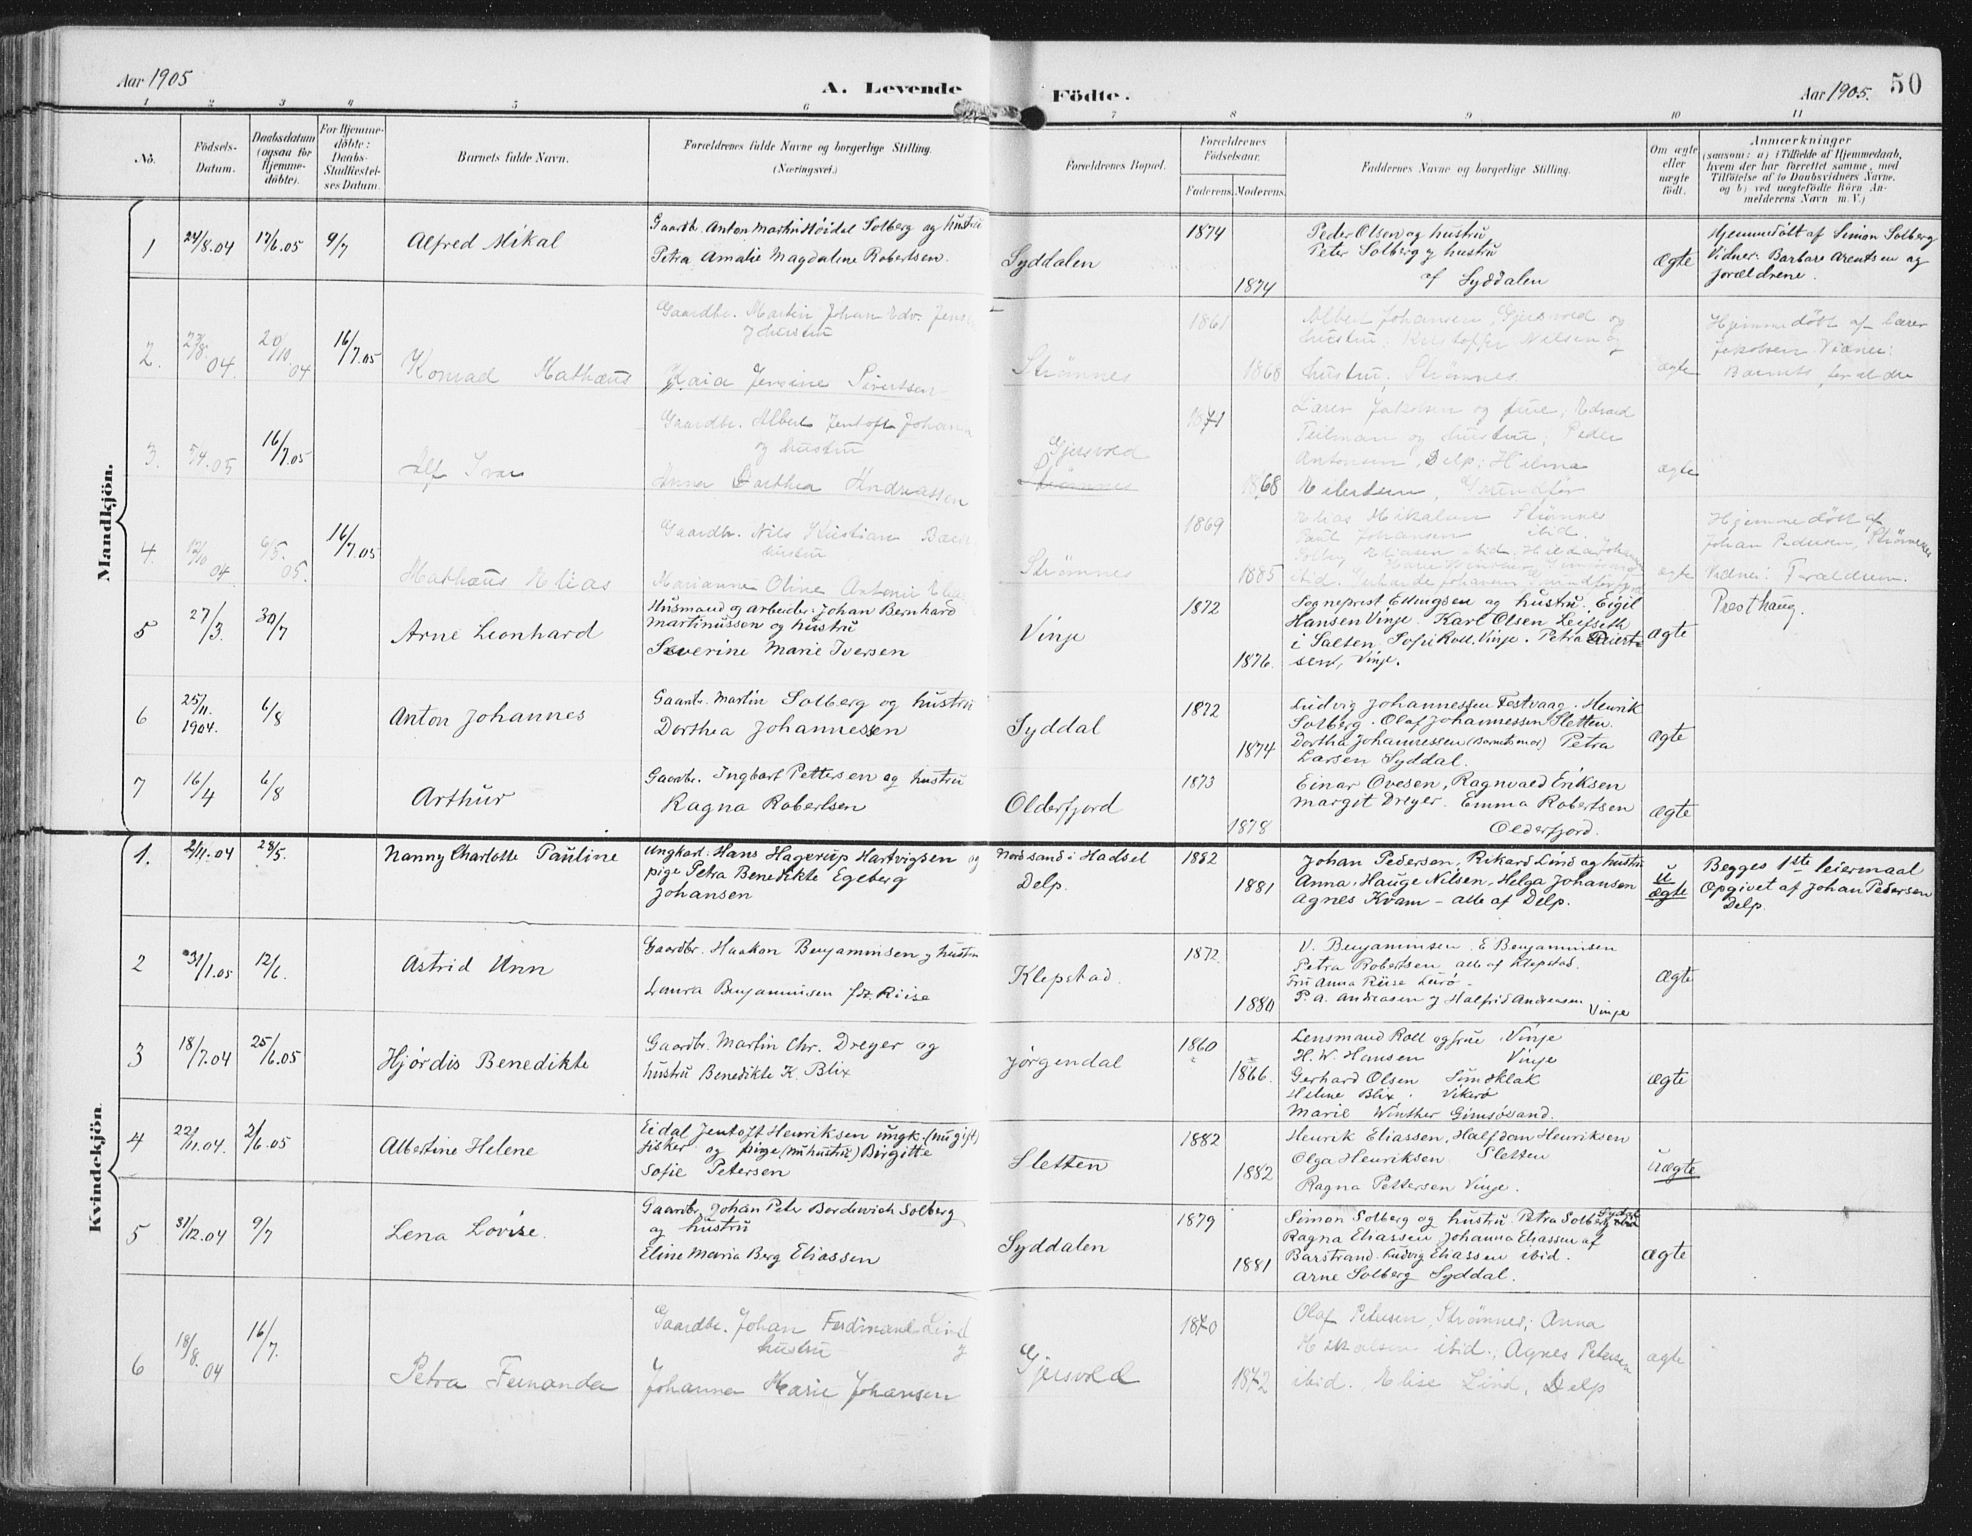 Aar 1905
A. Levende
Födte.
Aar 1905.
50
1 2 3 4 5 6 7 8 9 10 11
No.
Födsels-
Datum.
Daabsdatum
(ogsaa for
Hjemme-
döbte).
For Hjemme-
döbte:
Daabs-
Stadfæstel-
ses Datum.
Barnets fulde Navn.
Forældrenes fulde Navne og borgerlige Stilling.
(Næringsvei.)
Forældrenes Bopæl.
Forældrenes
Födselsaar.
Faderens. Moderens.
Faddernes Navne og borgerlige Stilling.
Om ægte
eller
uægte
födt.
Anmærkninger
(saasom: a) i Tilfælde af Hjemmedaab,
hvem der har forrettet samme, med
Tilföielse af to Daabsvidners Navne,
og b) ved uægtefödte Börn An-
melderens Navn m. V.)
Mandkjön.
1 24/8.04 17/6.05 9/7 Alfred Mikal
Gaardb. Anton Martin Høidal Solberg og hustru
Petra Amalie Magdalene Robertsen.
Syddalen
1874
1874
Peder Olsen og hustru
Peter Solberg og hustru
af Syddalen
ægte
Hjemmedöbt af Simon Solberg
Vidner: Barbare Arentsen og
forældrene.
2. 27/8 04 20/10 04 16/7.05 Konrad Mathæus
Gaardbr. Martin Johan Edv. Jens
og hustru
Kaia Jensine Sivertsen
Strømnes
1861
1868
Albert Johansen, Gjersvold og
hustru; Kristoffer Nilsen og
hustru, Strømnes
ægte
Hjemmedöbt af lærer
Jakobsen. Vidner:
Barnets forældre
3. 5/4.05 16/7.05 Alf Ivar
Gaardbr. Albert Jentoft Johan
og hustru
Anna Dorthea Andreassen
Gjersvold
Strømnes
1871
1868
Lærer Jakobsen og frue, Edvard
Teilman og hustru; Peder
Antonsen, Delp; Hilma
Eilertsen, Grundfør
ægte
4. 12/10 04 6/5. 05. 16/7.05 Mathæus Elias
Gaardbr. Nils Kristian
hustru
Marianne Oline Antonie
Strømnes
1869
1885
Elias Mikalsen Strømnes
Paul Johansen ibid.
ægte
Hjemmedöbt af
Johan Pedersen, Strømnes
Vidner: Forældrene.
5 27/3. 30/7 Arne Leonhard
Husmand og arbeider Johan Bernhard
Martinussen og hustru
Severine Marie Iversen
Vinje
1872
1876.
Sogneprest Ellingsen og hustru. Eigil
Hansen Vinje. Karl Olsen Leifseth
i Salten. Sofie Roll, Vinje. Petra
sen, Vinje.
ægte
Presthaug.
6 25/11. 1904. 6/8 Anton Johannes
Gaardbr. Martin Solberg og hustru
Dorthea Johannessen
Syddal
1872
1874
Ludvig Johannessen Festvaag. Henrik
Solberg. Olaf Johannessen Sletten.
Dorthea Johannessen (Barnets mor) Petra
Larsen Syddal.
ægte
7 16/4 6/8 Arthur
Gaardbr. Ingbart Pettersen og hustru
Ragna Robertsen
Olderfjord
1873
1878
Einar Ovesen, Ragnvald Eriksen
Margit Dreyer. Emma Robertsen
Olderfjord.
ægte
Kvindekjön.
1. 2/11.04 28/5. Nanny Charlotte Pauline
Ungkarl: Hans Hagerup Hartvigsen og
pige Petra Benedikte Egeberg
Johansen
Nordsand i Hadsel
Delp.
1882
1881
Johan Pedersen, Rikard Lind og hustru
Anna. Hauge Nilsen, Helga Johansen
Agnes Kvam – alle af Delp.
u
ægte
Begges 1ste leiermaal
Opgivet af Johan Pedersen
Delp.
2 31/1.05 12/6. Astrid Unn
Gaardbr. Haakon Benjaminsen og hustru
Laura Benjaminsen fdt. Riise
Klepstad.
1872
1880
V. Benjaminsen. E Benjaminsen
Petra Robertsen alle af Klepstad.
Fru Anna Riise Lurø
P. A. Andreasen og Halfrid Andreasen Vinje
ægte
3 18/7.04 25/6.05 Hjördis Benedikte
Gaardbr. Martin Chr. Dreyer og
hustru Benedikte K. Blix
Jörgendal
1860
1866.
Lensmand Roll og frue Vinje
H. W. Hansen Vinje
Gerhard Olsen Sundklak
Helene Blix. Vikerö
Marie Winther Gimsösand.
ægte
4 22/11.04. 2/6.05 Albertine Helene
Eidal Jentoft Henriksen ungk. (nu gift)
fisker og pige (nu hustru) Birgitte
Sofie Petersen
Sletten
1882
1882
Henrik Eliassen, Halfdan Henriksen
Olga Henriksen Sletten
Ragna Pettersen Vinje.
uægte
5 31/12.04 9/7 Lena Lovise.
Gaardbr. Johan Peter Borderwich Solberg
og hustru
Eline Maria Berg Eliassen
Syddalen
1879
1881
Simon Solberg og hustru. Petra Solberg
Ragna Eliassen, Johanna Eliassen af
Barstrand. Ludvig Eliassen ibid.
Arne Solberg Syddal.
ægte
6 18/8. 04 16/7. Petra Fernanda
Gaardbr. Johan Ferdinand Lind og
hustru
Johanna Marie Johansen
Gjersvold
1870
1872
Olaf Petersen, Strømnes; Anna
Mikalsen ibid.; Agnes Petersen
ibid. Elise Lind, Delp
ægte